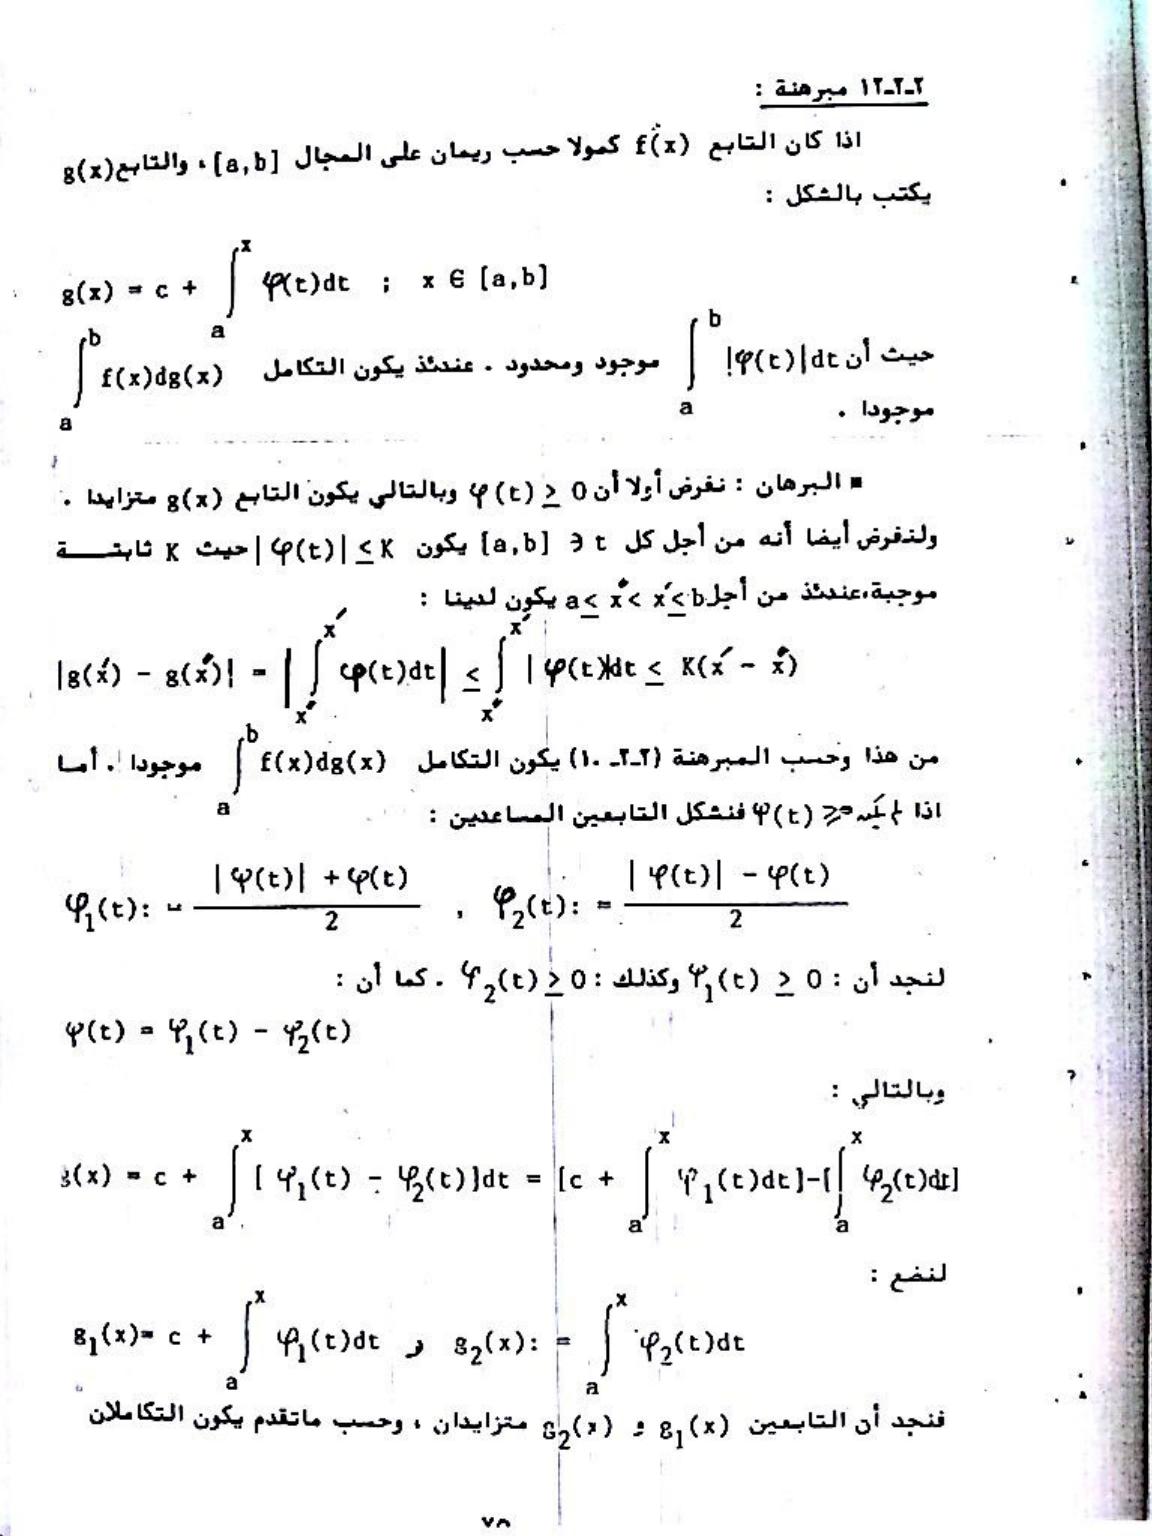 ١٢-٢-٢ مبرهنة :
اذا كان التابع f(x) كمولا حسب ريمان على المجال [a,b] ، والتابع g(x)
يكتب بالشكل :
g(x) = c + ∫_a^x φ(t)dt ; x ∈ [a,b]
حيث أن ∫_a^b |φ(t)|dt موجود ومحدود . عندئذ يكون التكامل ∫_a^b f(x)dg(x)
موجودا .
■ البرهان : نفرض أولا أن φ(t) ≥ 0 وبالتالي يكون التابع g(x) متزايدا .
ولنفرض أيضا أنه من أجل كل t ∈ [a,b] يكون |φ(t)| ≤ K حيث K ثابتة
موجبة، عندئذ من أجل a ≤ x″ < x′ ≤ b يكون لدينا :
|g(x′) - g(x″)| = |∫_{x″}^{x′} φ(t)dt| ≤ ∫_{x″}^{x′} |φ(t)|dt ≤ K(x′ - x″)
من هذا وحسب المبرهنة (٢-٢-١٠) يكون التكامل ∫_a^b f(x)dg(x) موجودا . أما
اذا لم يكن φ(t) ≥ 0 فنشكل التابعين المساعدين :
φ₁(t): = (|φ(t)| + φ(t))/2 , φ₂(t): = (|φ(t)| - φ(t))/2
لنجد أن : φ₁(t) ≥ 0 وكذلك : φ₂(t) ≥ 0 . كما أن :
φ(t) = φ₁(t) - φ₂(t)
وبالتالي :
g(x) = c + ∫_a^x [φ₁(t) - φ₂(t)]dt = [c + ∫_a^x φ₁(t)dt]-[∫_a^x φ₂(t)dt]
لنضع :
g₁(x)= c + ∫_a^x φ₁(t)dt و g₂(x): = ∫_a^x φ₂(t)dt
فنجد أن التابعين g₁(x) و g₂(x) متزايدان ، وحسب ماتقدم يكون التكاملان